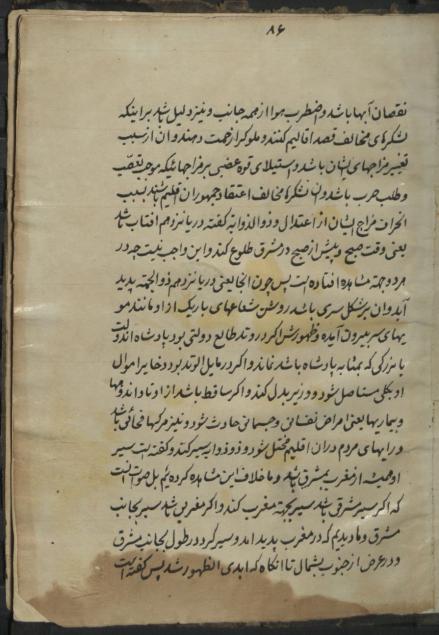 ۸۶
نقصان آبها باشد و اضطرب هوا از همه جانب و نیز دلیل باشد بر اینکه
لشکرهای مخالف قصد اقالیم کنند و ملوک را زحمت دهند و آن از سبب
تغییر مزاجهای ایشان باشد و استیلای قوه غضبی بر مزاجها نیکه موجب تعصّب
و طلب حرب باشد و آن لشکرها مخالف اعتقاد جمهوران اقلیم باشند بسبب
انحراف مزاج ایشان از اعتدال و ذو الذوابه گفته در یازدهم آفتاب باشد
یعنی وقت صبح و پیش از صبح در مشرق طلوع کند و این واجب نیست چه در
هر دو جهة مشاهده افتاده است پس چون انجا یعنی در یازدهم ذو الجمّه پدید
آید و آن بر شکل سری باشد روشن شعاعهای باریک از او مانند مو
یهای سر بیرون آمده و ظهورش اگر در وتد طالع دولتی بود پادشاه آن دولت
یا بزرگی که بمثابه پادشاه باشد نماند و اگر در مایل الوتد بود ذخایر اموال
او بکلی مستاصل شود و وزیر بدل کند و اگر ساقط باشد از اوتاد اندوهها
و بیماریها یعنی امراض نفسانی و جسمانی حادث شود و نیز مرکها فجائی باشد
و رایهای مردم در آن اقلیم مختل شود و ذو ذوابه سیر کند و گفته است سیر
او همیشه از مغرب بمشرق باشد و ما خلاف این مشاهده کرده ئیم بل صواب آنست
که اگر سیر شرقی باشد سیر بجهة مغرب کند و اگر مغربی باشد سیر بجانب
مشرق و ما دیدیم که در مغرب پدید آمد و سیر کرد در طول بجانب مشرق
و در عرض از جنوب بشمال تا آنکاه که ابدی الظهور شد پس گفته است